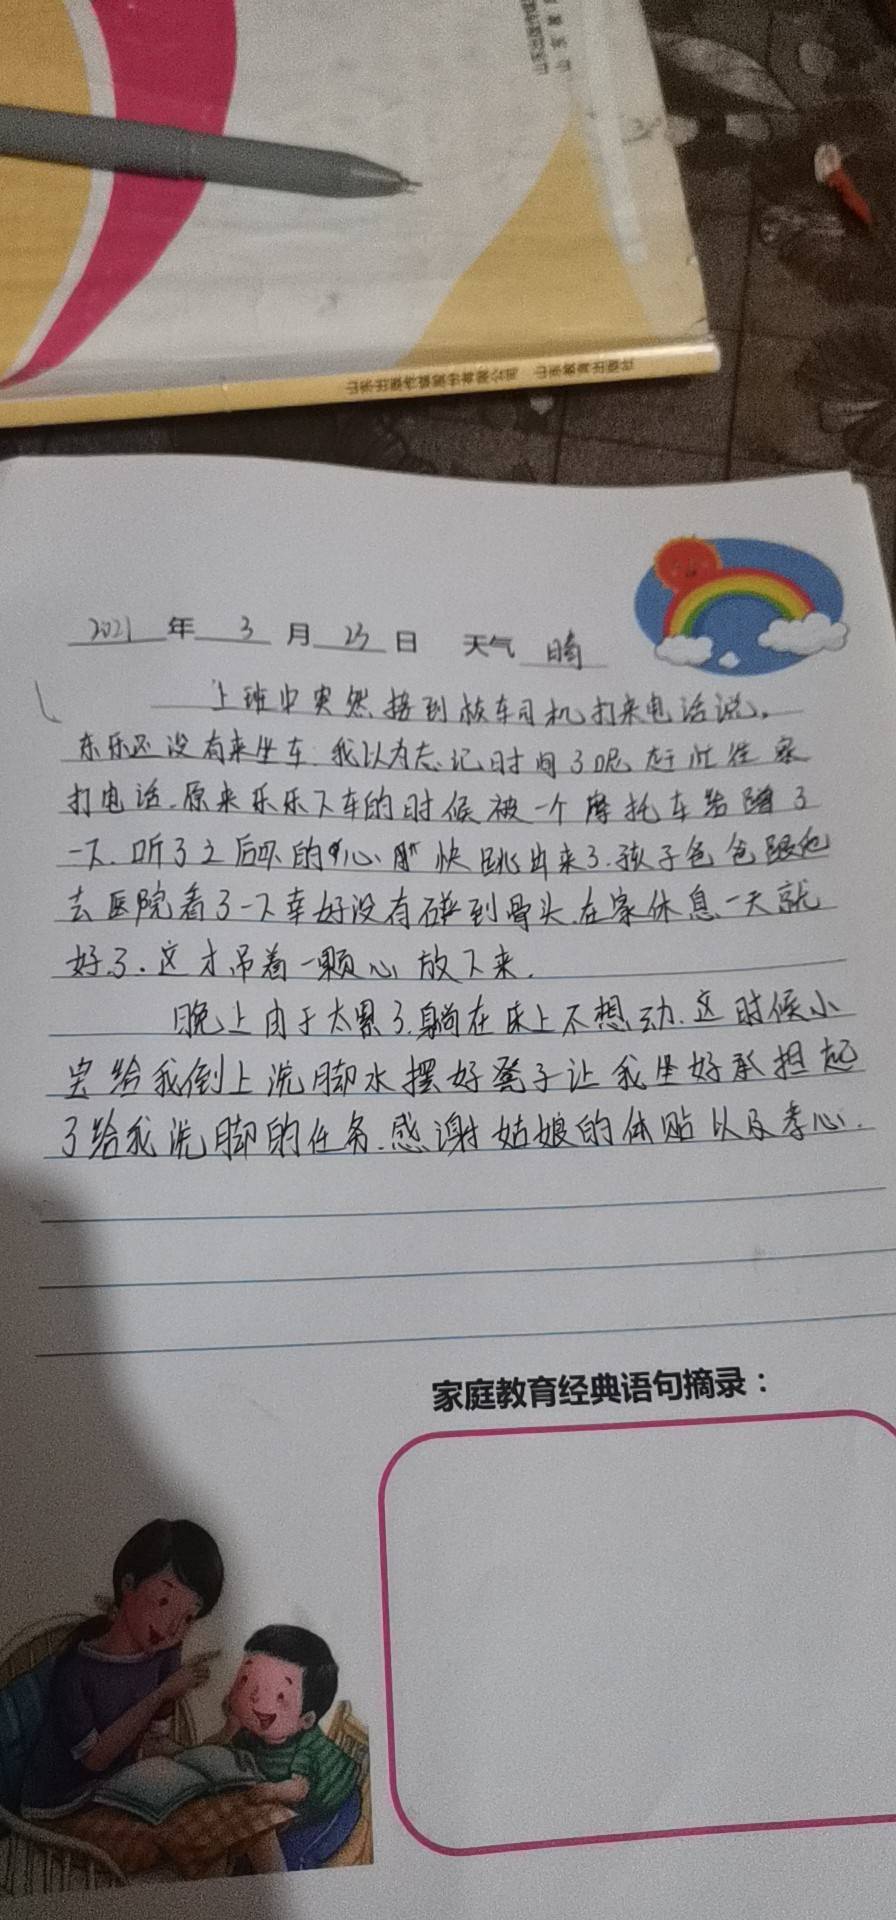 山东出版传媒股份有限公司 山东教育出版社
2021年3月23日 天气 晴
上班中突然接到校车司机打来电话说,
东乐还没有来坐车.我以为忘记时间了呢.赶忙往家
打电话.原来乐乐下车的时候被一个摩托车给蹭了
一下.听了之后吓的心都快跳出来了.孩子爸爸跟他
去医院看了一下幸好没有碰到骨头.在家休息一天就
好了.这才吊着一颗心放下来.
晚上由于太累了.躺在床上不想动.这时候小
宝给我倒上洗脚水摆好凳子让我坐好承担起
了给我洗脚的任务.感谢姑娘的体贴以及孝心.
家庭教育经典语句摘录：